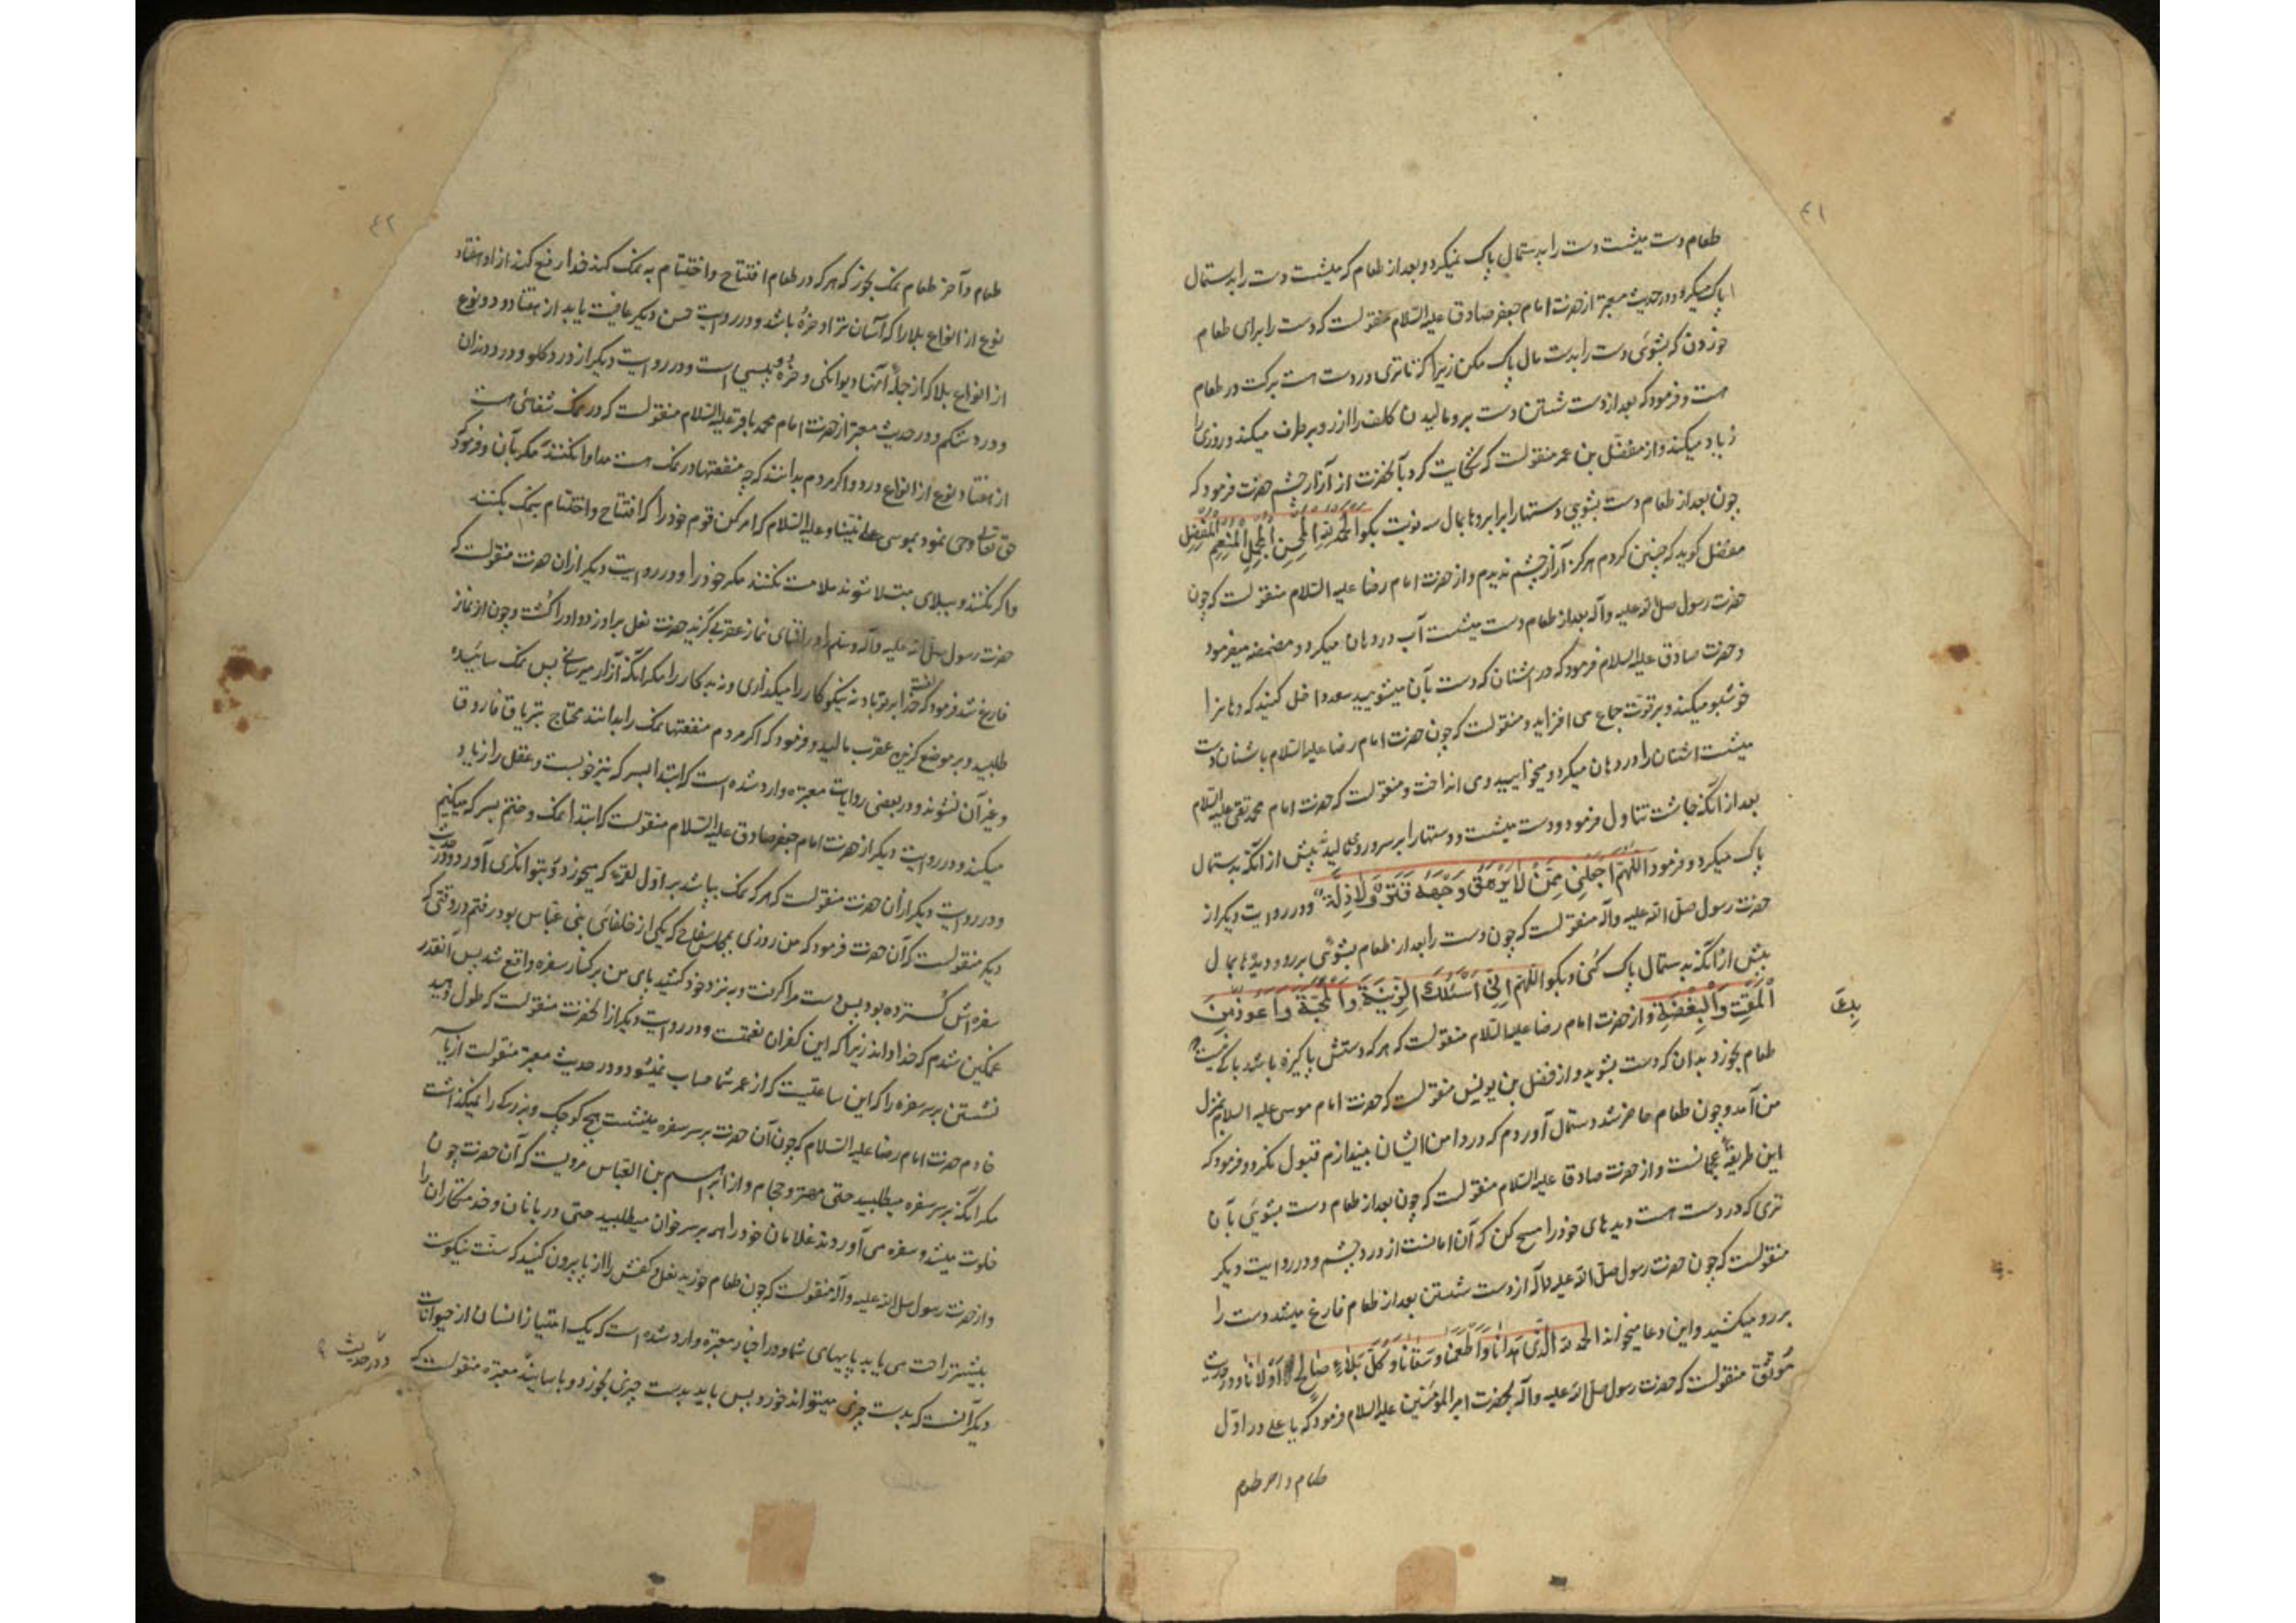 ٤١
طعام دست میشست دست را بدستمال پاک نمیکرد و بعد از طعام که میشست دست را بدستمال
پاک میکرد و در حدیث معتبر از حضرت امام جعفر صادق علیه السلام منقولست که دست را برای طعام
خوردن که بشوئی دست را بدست مال پاک مکن زیرا که تا تری در دست هست برکت در طعام
هست و فرمود که بعد از دست شستن دست برو مالیدن کلف را از رو برطرف میکند و روزی را
زیاد میکند و از مفضل بن عمر منقولست که شکایت کرد بآنحضرت از آزار چشم حضرت فرمود که
چون بعد از طعام دست بشویی دستها را برابروها بمال سه نوبت بگو الحمد لله المحسن المجمل المنعم المفضل
مفضل گوید که چنین کردم هرگز آزار چشم ندیدم و از حضرت امام رضا علیه السلام منقولست که چون
حضرت رسول صلی الله علیه وآله بعد از طعام دست میشست آب در دهان میکرد و مضمضه میفرمود
و حضرت صادق علیه السلام فرمود که در اشنان که دست بآن میشویید سعد داخل کنید که دهانرا
خوشبو میکند و بر قوت جماع می افزاید و منقولست که چون حضرت امام رضا علیه السلام باشنان دست
میشست اشنان را در دهان میکرد و میخوایید و می انداخت و منقولست که حضرت امام محمد تقی علیه السلام
بعد از آنکه چاشت تناول فرمود و دست میشست و دستها را بر سر و رو می مالید پیش از آنکه بدستمال
پاک میکرد و فرمود اللهم اجعلنی ممن لا یرهق وجهه قتر ولا ذلة و در روایت دیگر از
حضرت رسول صلی الله علیه وآله منقولست که چون دست را بعد از طعام بشوئی بر رو و دیدها بمال
پیش از آنکه بدستمال پاک کنی و بگو اللهم انی اسئلک الزینة والمحبة واعوذ بک من
المقت والبغضة و از حضرت امام رضا علیه السلام منقولست که هر که دستش پاکیزه باشد باکی نیست که
طعام بخورد بدان که دست بشوید و از فضل بن یونس منقولست که حضرت امام موسی علیه السلام بمنزل
من آمد و چون طعام حاضر شد دستمال آوردم که در دامن ایشان بیندازم قبول نکرد و فرمود که
این طریقهٔ عجمانست و از حضرت صادق علیه السلام منقولست که چون بعد از طعام دست بشوئی بآن
تری که در دست هست دیدهای خود را مسح کن که آن امانست از درد چشم و در روایت دیگر
منقولست که چون حضرت رسول صلی الله علیه وآله از دست شستن بعد از طعام فارغ میشد دست را
بر رو میکشید و این دعا میخواند الحمد لله الذی هدانا واطعمنا وسقانا وکل بلاء صالح اولانا و در حدیث
موثق منقولست که حضرت رسول صلی الله علیه وآله بحضرت امیر المومنین علیه السلام فرمود که یا علی در اول
طعام و آخر طعام
٤٢
طعام و آخر طعام نمک بخور که هر که در طعام افتتاح و اختتام به نمک کند خدا رفع کند از او هفتاد
نوع از انواع بلا را که آسان تر از او خوره باشد و در روایت حسن دیگر عافیت یابد از هفتاد و دو نوع
از انواع بلا که از جملهٔ آنها دیوانگی و خوره و پیسی است و در روایت دیگر از درد گلو و درد دندان
و درد شکم و در حدیث معتبر از حضرت امام محمد باقر علیه السلام منقولست که در نمک شفائی است
از هفتاد نوع از انواع درد و اگر مردم بدانند که چه منفعتها در نمک هست مداوا نکنند مگر بآن و فرمود که
حق تعالی وحی نمود بموسی علی نبینا و علیه السلام که امر کن قوم خود را که افتتاح و اختتام بنمک بکنند
و اگر نکنند و ببلای مبتلا شوند ملامت نکنند مگر خود را و در روایت دیگر از ان حضرت منقولست که
حضرت رسول صلی الله علیه وآله وسلم را در اثنای نماز عقربی گزید حضرت نعل بر او زد و او را کشت و چون از نماز
فارغ شد فرمود که لعنت خدا بر تو باد نه نیکوکار را میگذاری و نه بدکار را مگر آنکه آزار میرسانی پس نمک سائیده
طلبید و بر موضع گزیدن عقرب مالید و فرمود که اگر مردم منفعتها نمک را بدانند محتاج بتریاق فاروق
و غیر آن نشوند و در بعضی روایات معتبره وارد شده است که ابتدا بسرکه نیز خوبست و عقل را زیاد
میکند و در روایت دیگر از حضرت امام جعفر صادق علیه السلام منقولست که ابتدا بنمک و ختم بسرکه میکنیم
و در روایت دیگر از ان حضرت منقولست که هر که نمک بپاشد بر اول لقمهٔ که میخورد رو بتوانگری آورد و در حدیث
دیگر منقولست که آن حضرت فرمود که من روزی بمجلس سفاح که یکی از خلفای بنی عباس بود رفتم در وقتی که
سفره اش گسترده بود پس دست مرا گرفت و به نزد خود کشید پای من بر کنار سفره واقع شد پس آنقدر
غمگین شدم که خدا داند زیرا که این کفران نعمتست و در روایت دیگر از آنحضرت منقولست که طول دهید
نشستن بر سر سفره را که این ساعتیست که از عمر شما حساب نمیشود و در حدیث معتبر منقولست از یاسر
خادم حضرت امام رضا علیه السلام که چون آن حضرت بر سر سفره مینشست هیچ کوچک و بزرگ را نمیگذاشت
مگر آنکه بر سر سفره میطلبید حتی مهتر و حجام و از ابراهیم بن العباس مرویست که آن حضرت چون
خلوت میشد و سفره می آوردند غلامان خود را همه بر سر خوان میطلبید حتی دربانان و خدمتکاران را
و از حضرت رسول صلی الله علیه وآله منقولست که چون طعام خورید نعل و کفش را از پا بیرون کنید که سنت نیکوست
بیشتر راحت می یابد پایهای شما و در اخبار معتبره وارد شده است که یک امتیاز انسان از حیوانات
دیگر آنست که بدست چیزی میتواند خورد پس باید بدست چیزی بخورد و با سانید معتبره منقولست که
و در حدیث